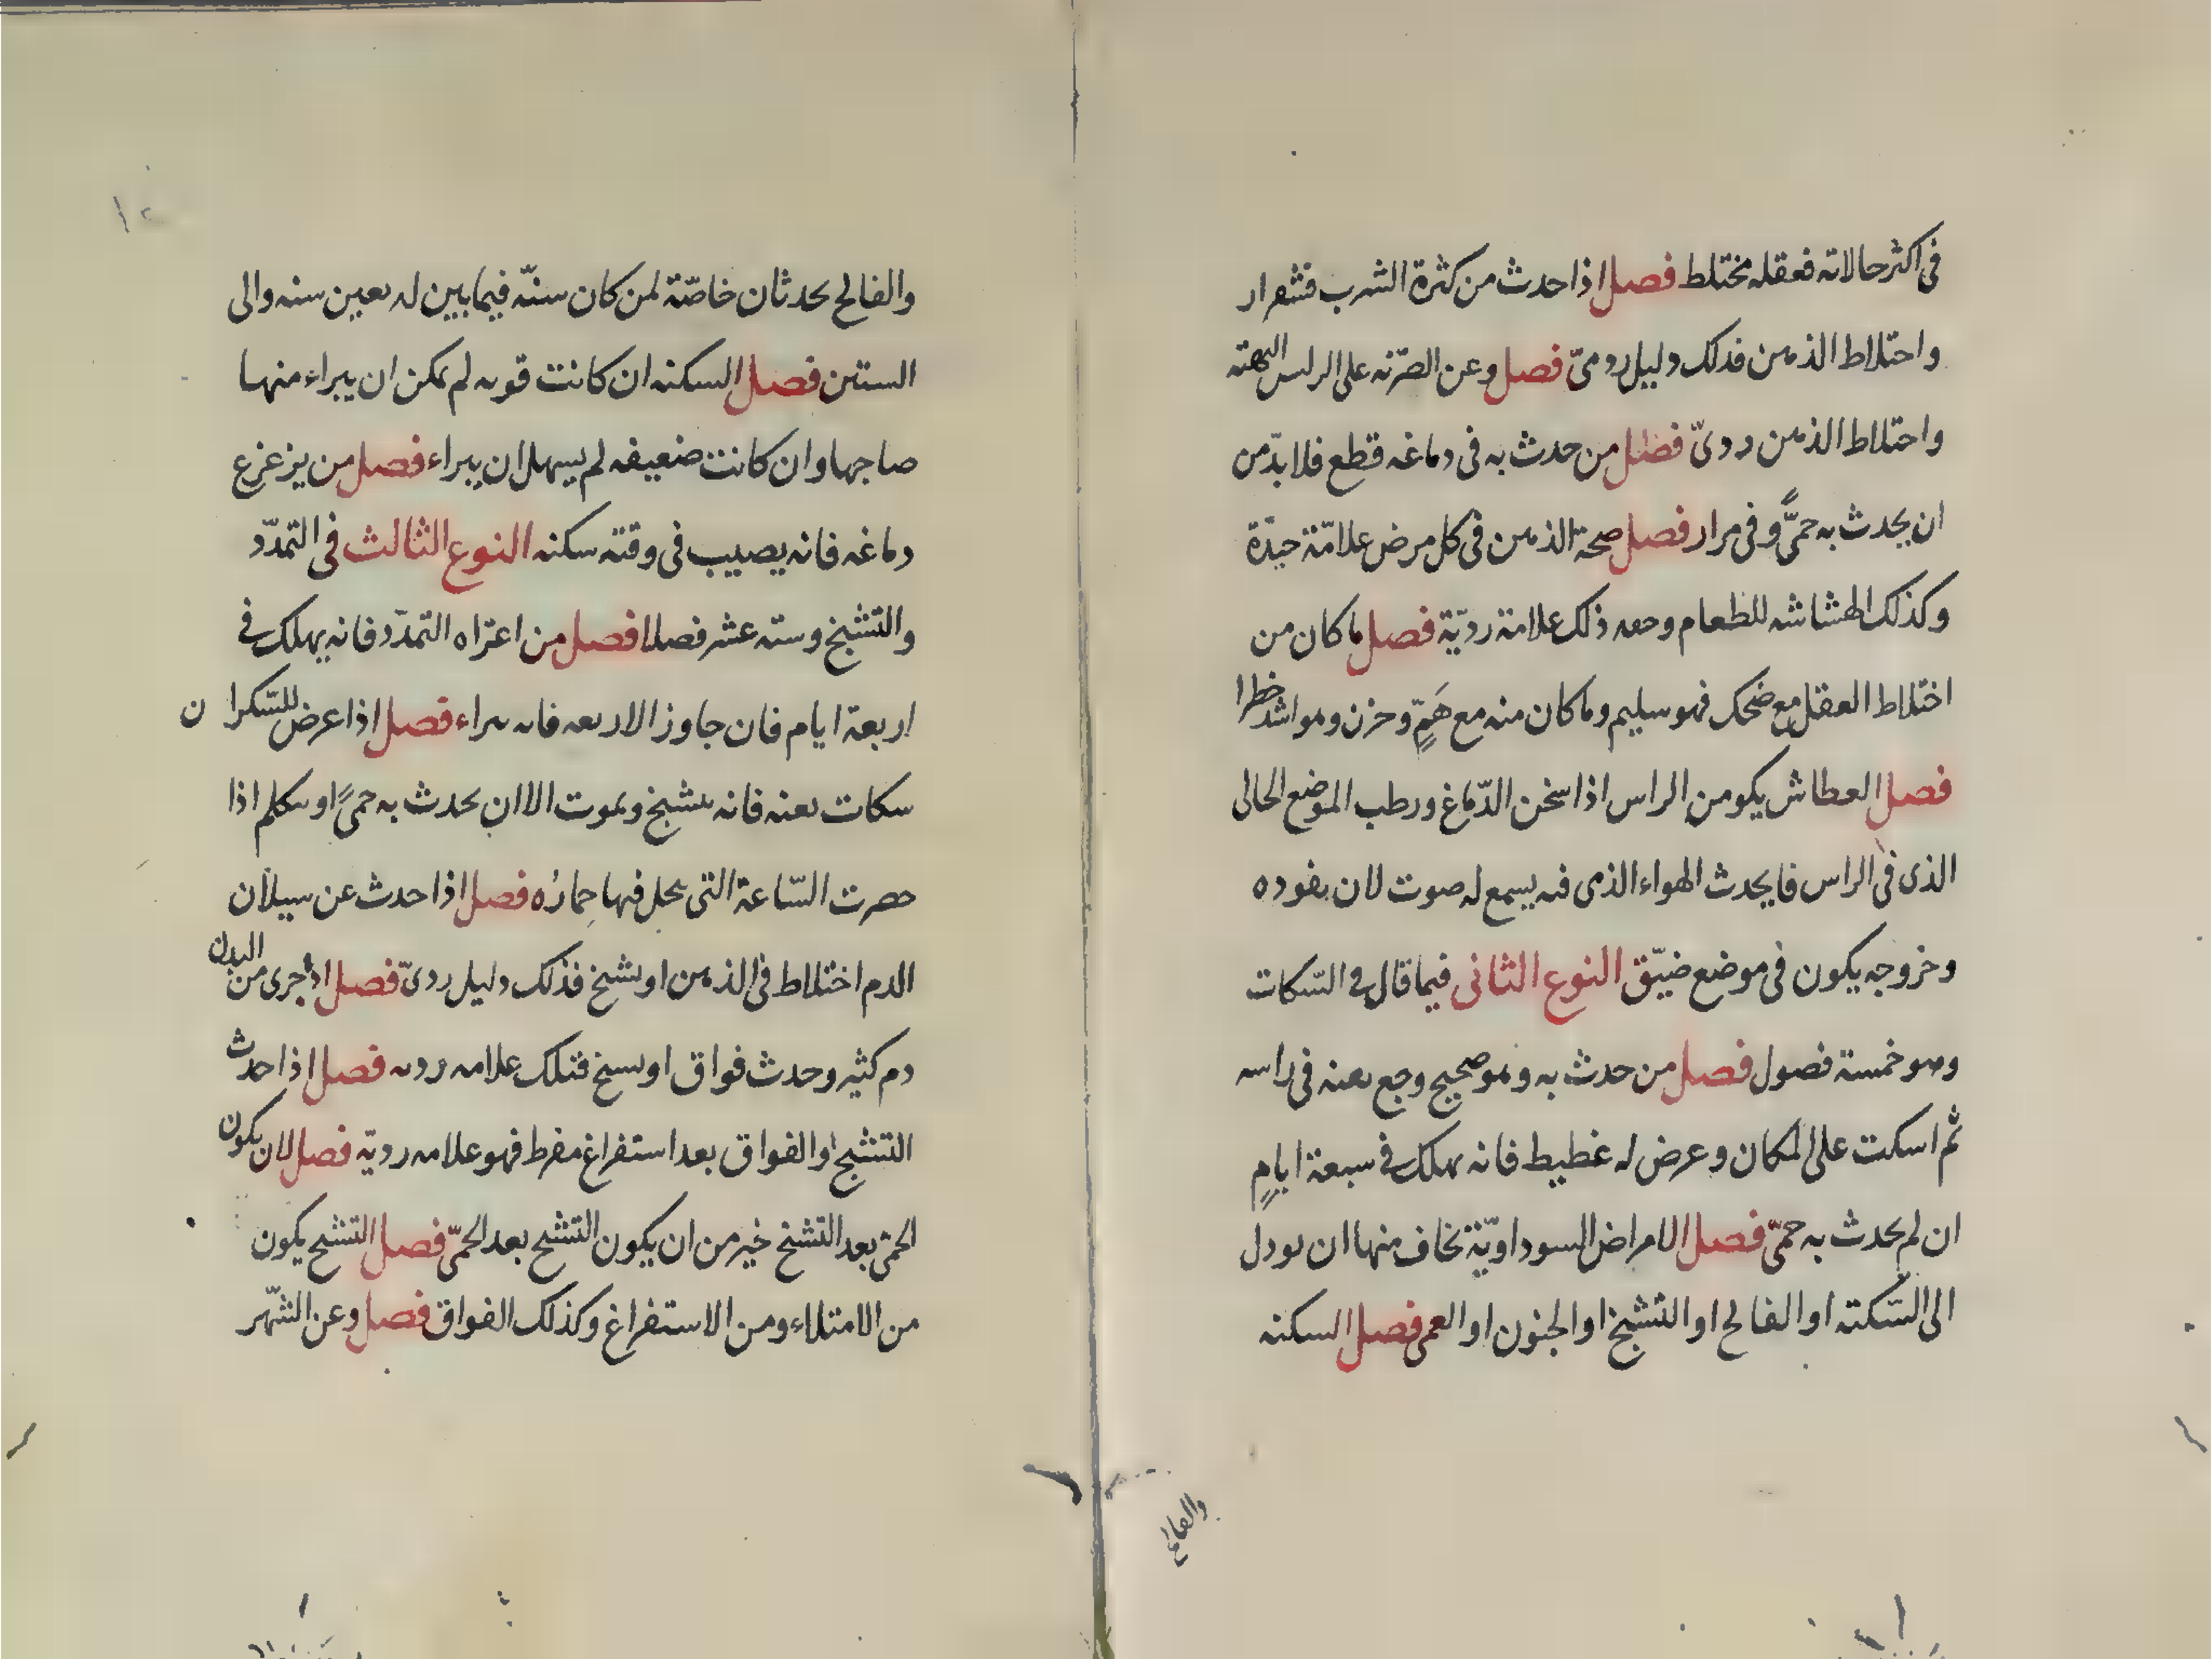 فى اكثر حالاته فعقله مختلط فصل اذا حدث من كثرة الشرب قشعرار
واختلاط الذهن فذلك دليل ردىّ فصل وعن الضربه على الراس البهته
واختلاط الذهن ردىّ فصل من حدث به فى دماغه قطع فلا بدّ من
ان يحدث به حمىًّ وفى مرار فصل صحة الذهن فى كل مرض علامّة جيدّة
وكذلك الهشاشه للطعام وضده ذلك علامة رديّة فصل ما كان من
اختلاط العقل مع ضحك فهو سليم وما كان منه مع هَمٍّ وحزن وهو اشد خطرا
فصل العطاش يكو من الراس اذا سخن الدّماغ ورطب الموضع الخالى
الذى فى الراس فايحدث الهواء الذى فيه يسمع له صوت لان نفوده
وخروجه يكون فى موضع ضيّق النوع الثانى فيما قال فى السّكات
وهو خمسة فصول فصل من حدث به وهو صحيح وجع بغته فى راسه
ثم اسكت على المكان وعرض له غطيط فانه يهلك فى سبعة ايامٍ
ان لم يحدث به حمىّ فصل الامراض السوداويّة يخاف منها ان تودل
الى السّكتة او الفالج او التشنج او الجنون او العمى فصل السكته
والفالج
والفالج يحدثان خاصّة لمن كان سنّه فيما بين اربعين سنه والى
الستين فصل السكته ان كانت قويه لم يمكن ان يبراء منها
صاحبها وان كانت ضعيفه لم يسهل ان يبراء فصل من يزعزع
دماغه فانه يصيب فى وقته سكته النوع الثالث فى التمدّد
والتشنج وسته عشر فصلا فصل من اعتراه التمدّد فانه يهلك فى
اربعة ايام فان جاوز الاربعه فانه يبراء فصل اذا عرض للسّكران
سكات بغته فانه يتشنج ويموت الا ان يحدث به حمىً او يتكلم اذا
حضرت السّاعة التى يحل فيها خمارُه فصل اذا حدث عن سيلان
الدم اختلاط فى الذهن او تشنج فذلك دليل ردىّ فصل اذا جرى من البدن
دم كثير وحدث فواق او تشنج فتلك علامه رديه فصل اذا حدث
التشنج او الفواق بعد استفراغ مفرط فهو علامه رديّه فصل لان يكون
الحمّى بعد التشنج خير من ان يكون التشنج بعد الحمىّ فصل التشنج يكون
من الامتلاء ومن الاستفراغ وكذلك الفواق فصل وعن السّهر